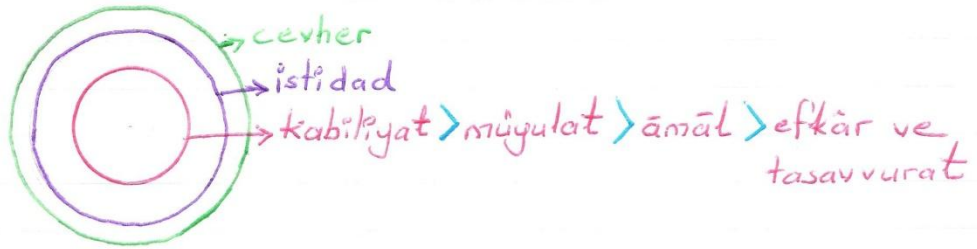 cevher
istidad
kabiliyat > müyulat > âmâl > efkâr ve
tasavvurat